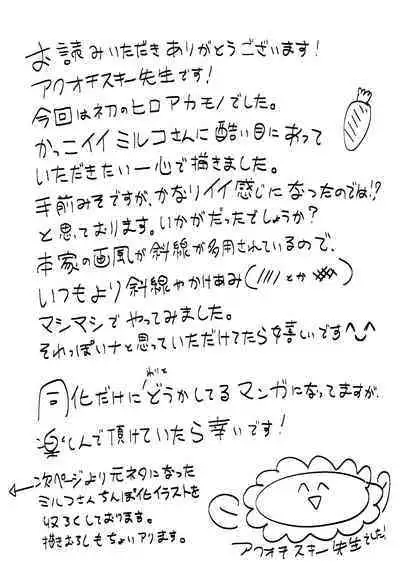 お読みいただきありがとうございます!
アクオチスキー先生です!
今回は初のヒロアカモノでした。
かっこイイミルコさんに酷い目にあって
いただきたい一心で描きました。
手前みそですが、かなりイイ感じになったのでは!?
と思っております。いかがだったでしょうか?
本家の画風が斜線が多用されているので、
いつもより斜線やかけあみ(////とか)
マシマシでやってみました。
それっぽいナと思っていただけてたら嬉しいです^_^
同化だけにわりとどうかしてるマンガになってますが、
楽しんで頂けていたら幸いです!
←次ページより元ネタになった
ミルコさんちんぽ化イラストを
収ろくしております。
描きおろしもちょいアリます。
アクオチスキー先生でした!